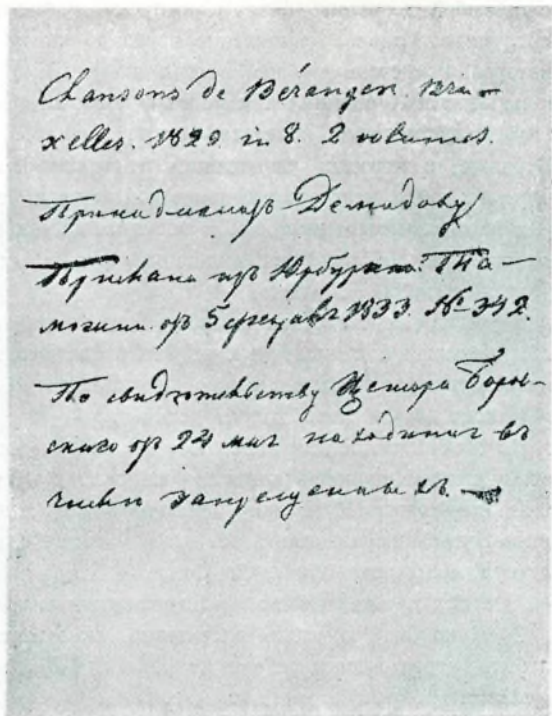 Chansons de Béranger. Bru-
xelles. 1829. in 8. 2 volumes.
Принадлежатъ Демидову
Присланы изъ Юрбургской Та-
можни отъ 5 февраля 1833. № 342.
По свидѣтельству Ценсора
скаго отъ 24 мая находится въ
числѣ запрещенныхъ.